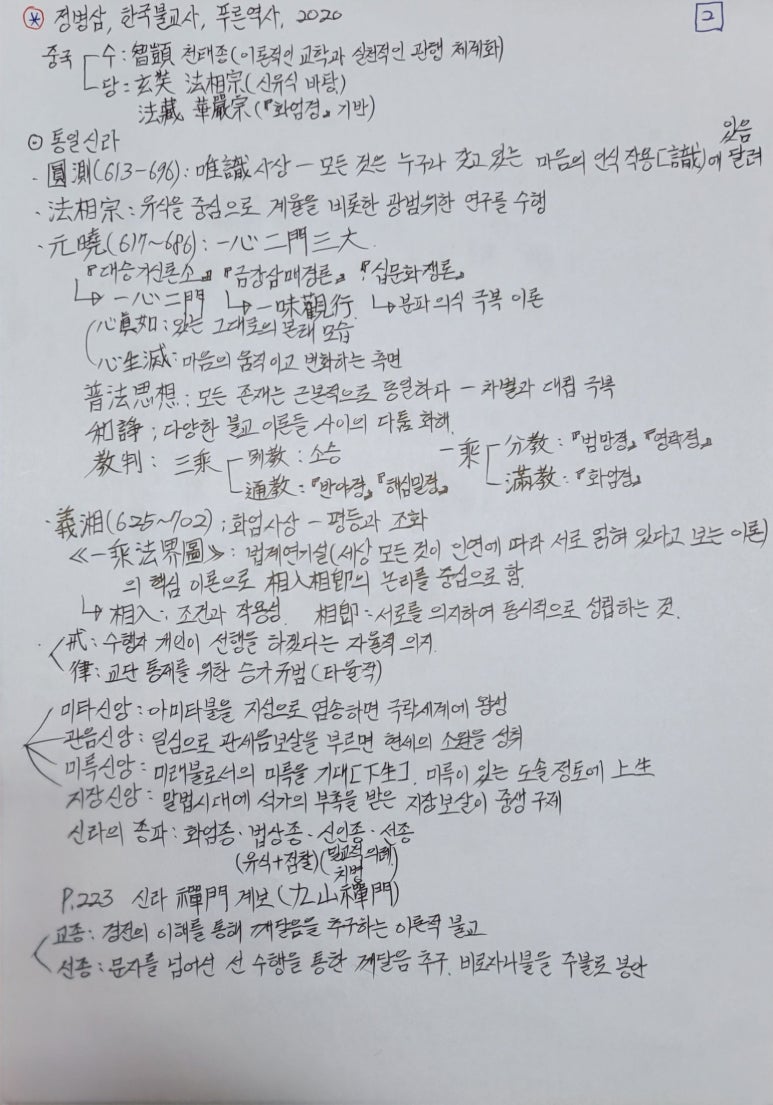 ⊛ 정병삼, 한국불교사, 푸른역사, 2020
2
중국 수 : 智顗 천태종(이론적인 교학과 실천적인 관행 체계화)
당 : 玄奘 法相宗(신유식 바탕)
法藏 華嚴宗(『화엄경』 기반)
⊙ 통일신라
· 圓測(613-696) : 唯識사상 - 모든 것은 누구나 갖고 있는 마음의 인식 작용[識]에 달려 있음
· 法相宗 : 유식을 중심으로 계율을 비롯한 광범위한 연구를 수행
· 元曉(617~686) : 一心 二門 三大
『대승기신론소』 『금강삼매경론』 『십문화쟁론』
↳ 一心二門 ↳ 一味觀行 ↳ 분파 의식 극복 이론
心眞如 : 있는 그대로의 본래 모습
心生滅 : 마음의 움직이고 변화하는 측면
普法思想 : 모든 존재는 근본적으로 동일하다 - 차별과 대립 극복
和諍 ; 다양한 불교 이론들 사이의 다툼 화해.
敎判 : 三乘 別敎 : 소승 一乘 分敎 : 『범망경』 『영락경』
通敎 : 『반야경』, 『해심밀경』 滿敎 : 『화엄경』
· 義湘(625~702) ; 화엄사상 - 평등과 조화
≪一乘法界圖≫ : 법계연기설(세상 모든 것이 인연에 따라 서로 얽혀 있다고 보는 이론)
의 핵심 이론으로 相入相卽의 논리를 중심으로 함.
↳ 相入 : 조건과 작용성. 相卽 : 서로를 의지하여 동시적으로 성립하는 것.
· 戒 : 수행자 개인이 선행을 하겠다는 자율적 의지
律 : 교단 통제를 위한 승가 규범(타율적)
미타신앙 : 아미타불을 지성으로 염송하면 극락세계에 왕생
관음신앙 : 일심으로 관세음보살을 부르면 현세의 소원을 성취
미륵신앙 : 미래불로서의 미륵을 기대[下生]. 미륵이 있는 도솔정토에 上生
지장신앙 : 말법시대에 석가의 부촉을 받은 지장보살이 중생 구제
신라의 종파 : 화엄종 · 법상종 · 신인종 · 선종
(유식+점찰) (밀교적 의례, 치병)
P.223 신라 禪門 계보 (九山禪門)
교종 : 경전의 이해를 통해 깨달음을 추구하는 이론적 불교
선종 : 문자를 넘어선 선 수행을 통한 깨달음 추구. 비로자나불을 주불로 봉안